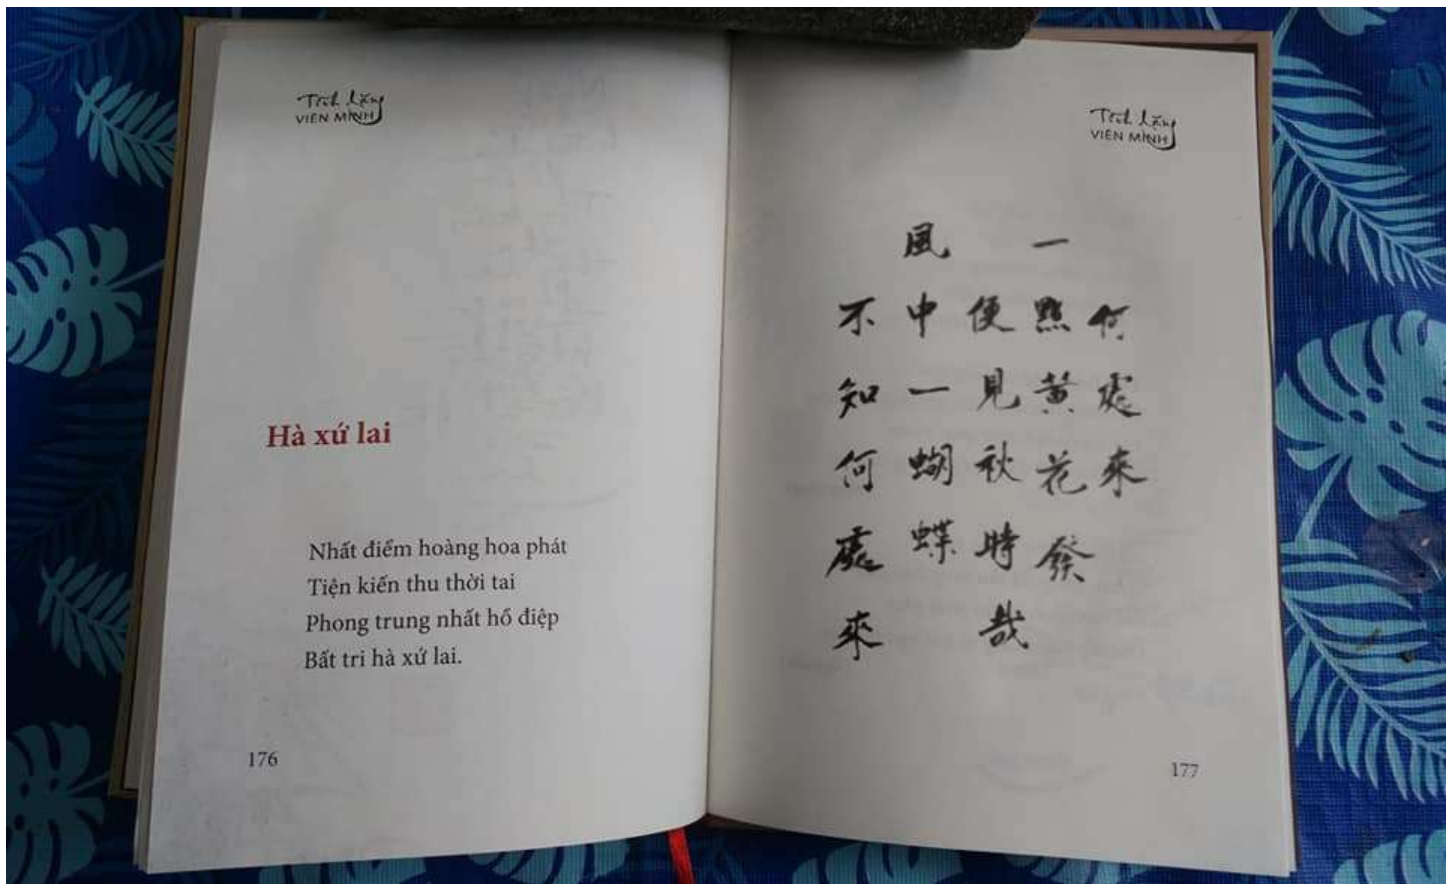 Tĩnh lặng
VIÊN MINH
Hà xứ lai
Nhất điểm hoàng hoa phát
Tiện kiến thu thời tai
Phong trung nhất hồ điệp
Bất tri hà xứ lai.
176
Tĩnh lặng
VIÊN MINH
何處來
一點黃花發
便見秋時哉
風中一蝴蝶
不知何處來
177